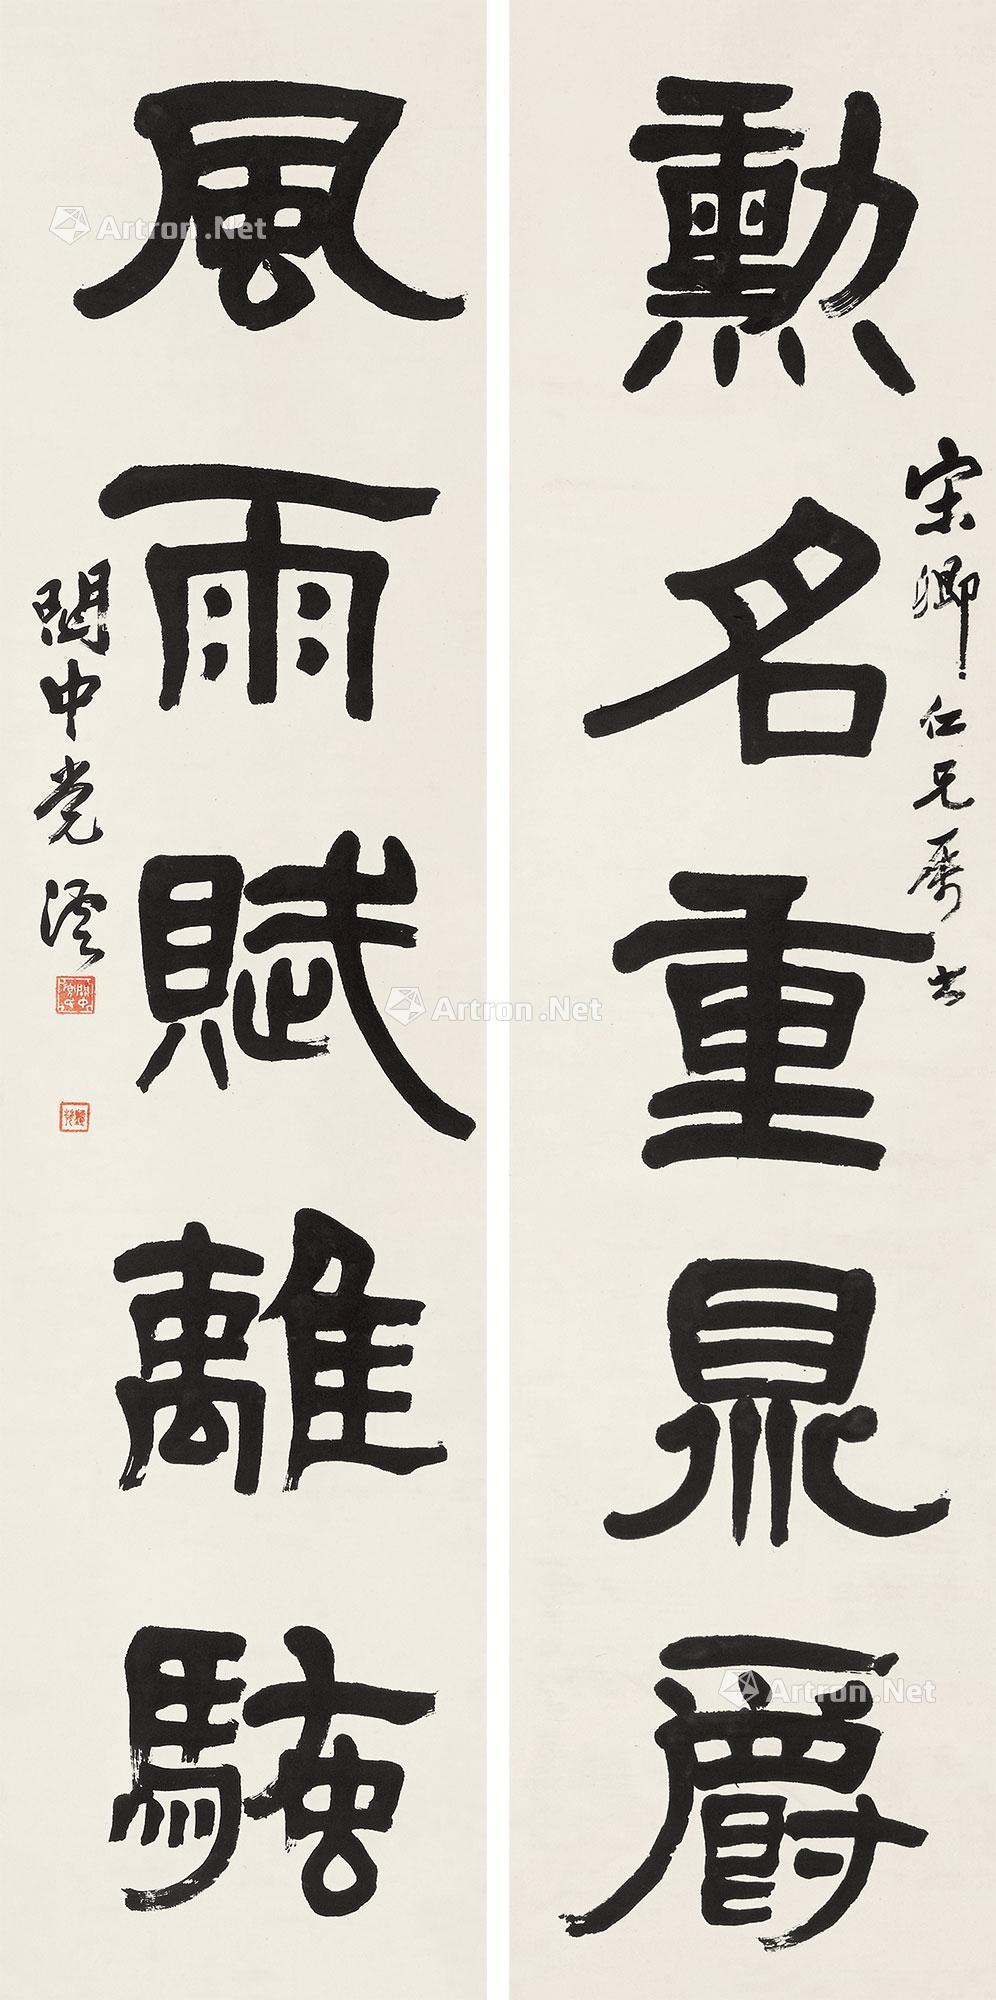 勳名重鼎爵
宋卿仁兄属書
風雨賦離騷
關中党澐
Artron.Net
Artron.Net
Artron.Net